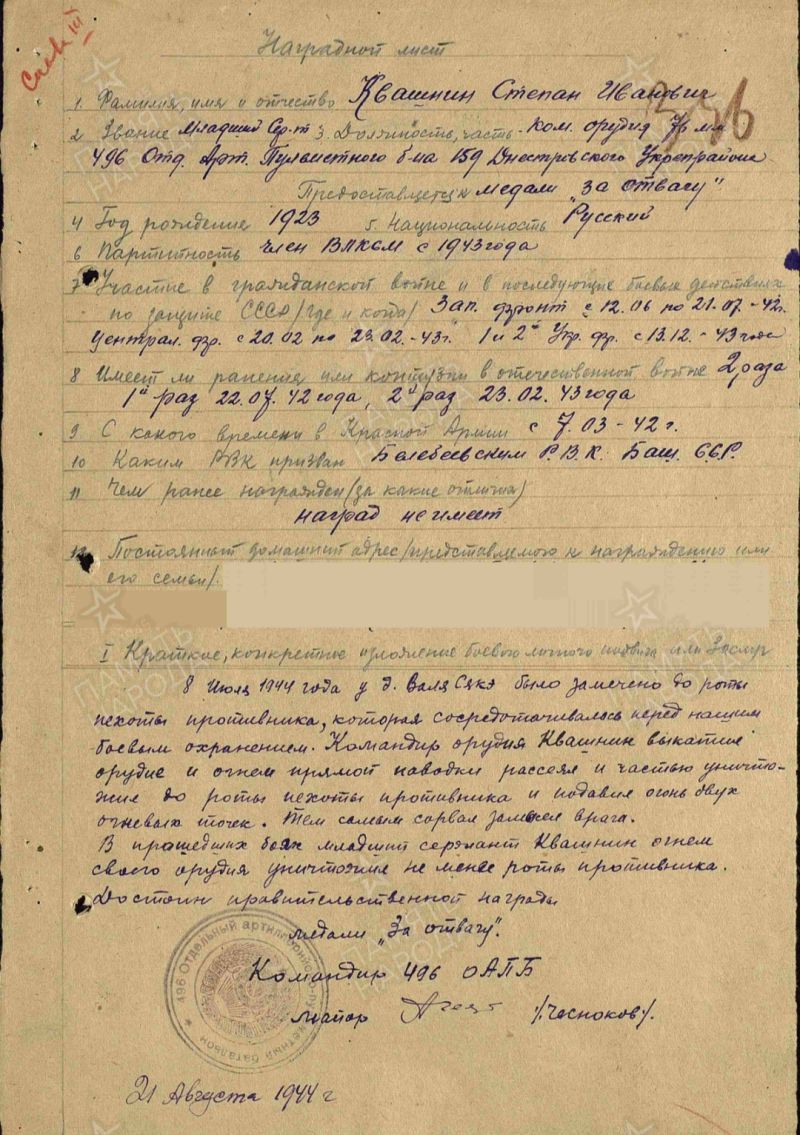 Наградной лист
1. Фамилия, имя и отчество Квашнин Степан Иванович
2 Звание Младший Сер-т 3. Должность, часть - Ком. орудия 76 мм
496 Отд. Арт. Пульветного б-на 159 Днестровского Укрепрайона
Предоставляется к медали "за отвагу"
4 Год рождение 1923 5. Национальность Русский
6 Партитность член ВЛКСМ с 1943 года
7 Участие в гражданской войне и в последующих боевых действиях
по защите СССР /где и когда/ Зап. фронт с 12.06 по 21.07.-42г.
Централ. фр. с 20.02 по 23.02.-43г. 1 и 2й Укр. фр. с 13.12.-43 года
8 Имеет ли ранения или контузии в отечественной войне 2 раза
1й раз 22.07.42 года, 2й раз 23.02.43 года
9 С какого времени в Красной Армии с 7.03-42 г.
10 Каким РВК призван Белебеевским Р.В.К. Баш. ССР.
11 Чем ранее награжден (за какие отличия)
наград не имеет
12 Постоянный домашний адрес /представляемого к награждению или
его семьи/.
I Краткое, конкретное изложение боевого личного подвига или Заслуг
8 Июля 1944 года у д. Валя Сякэ было замечено до роты
пехоты противника, которая сосредотачивалась перед нашим
боевым охранением. Командир орудия Квашнин выкатил
орудие и огнем прямой наводки рассеял и частью уничто-
жил до роты пехоты противника и подавил огонь двух
огневых точек. Тем самым сорвал замысел врага.
В прошедших боях младший сержант Квашнин огнем
своего орудия уничтожил не менее роты противника.
Достоин правительственной награды
медали "За отвагу".
Командир 496 ОАПБ
Майор /Чесноков/.
496 Отдельный артиллерийско-пулеметный батальон
21 Августа 1944 г
ПАМЯТЬ НАРОДА